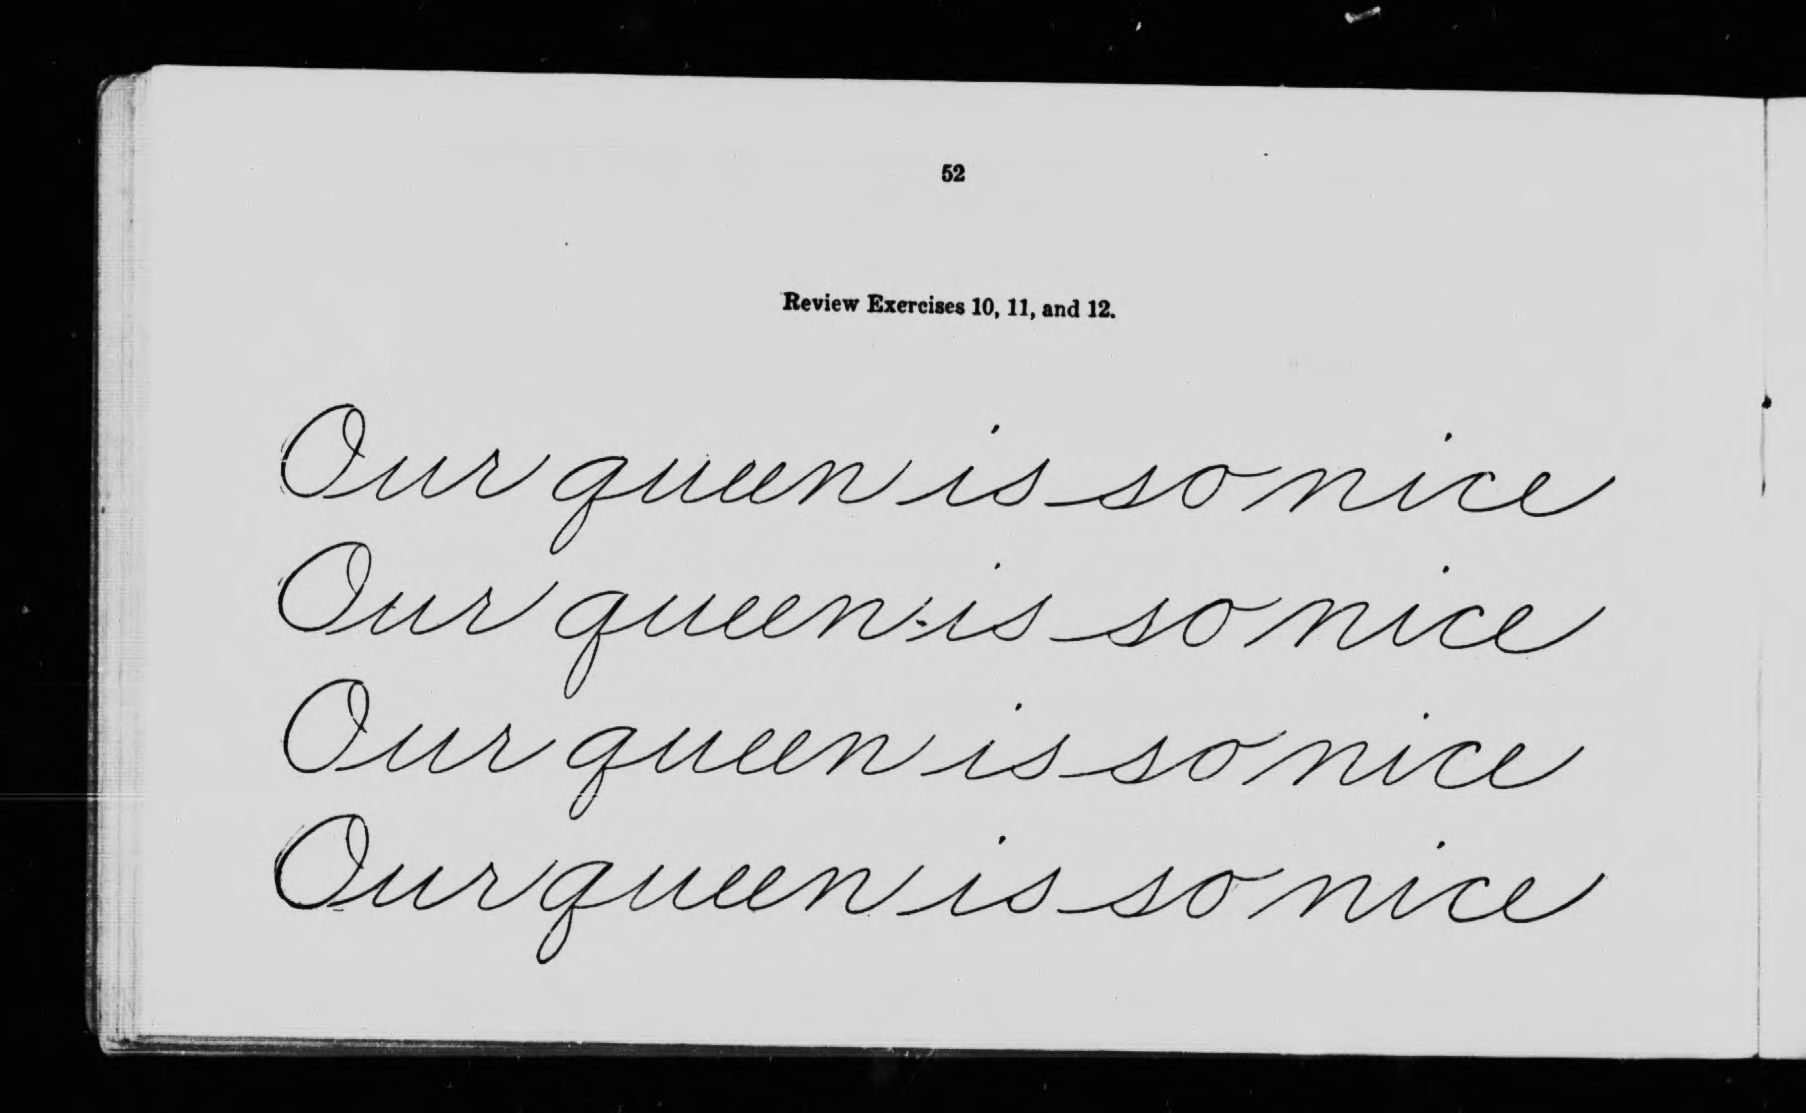 52
Review Exercises 10, 11, and 12.
Our queen is so nice
Our queen is so nice
Our queen is so nice
Our queen is so nice